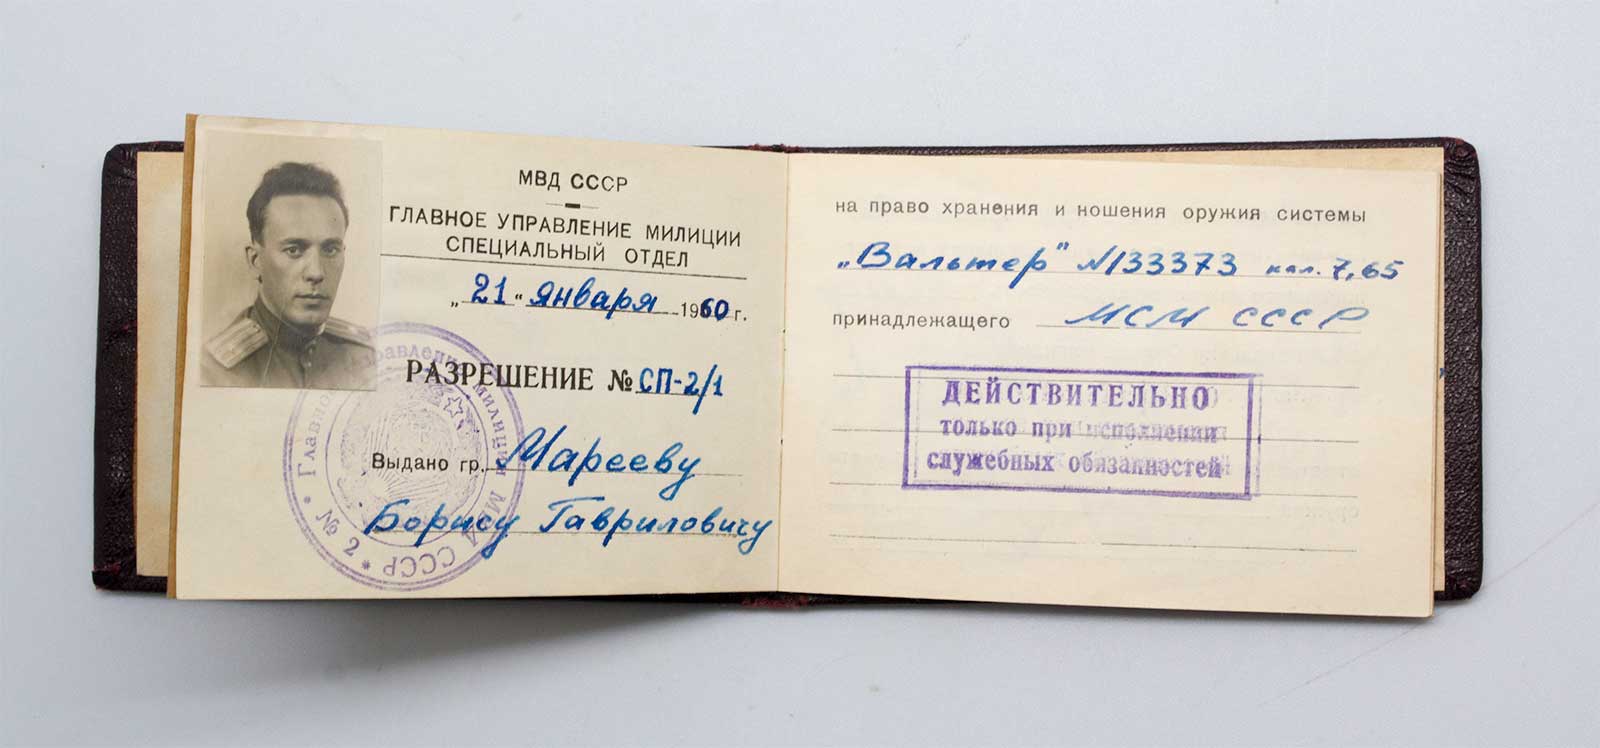 МВД СССР
ГЛАВНОЕ УПРАВЛЕНИЕ МИЛИЦИИ
СПЕЦИАЛЬНЫЙ ОТДЕЛ
„21“ января 1960 г.
РАЗРЕШЕНИЕ № СП-2/1
Выдано гр. Марееву
Борису Гавриловичу
Главное управление милиции МВД СССР * № 2 *
на право хранения и ношения оружия системы
„Вальтер“ №133373 кал. 7,65
принадлежащего МСМ СССР
ДЕЙСТВИТЕЛЬНО
только при исполнении
служебных обязанностей